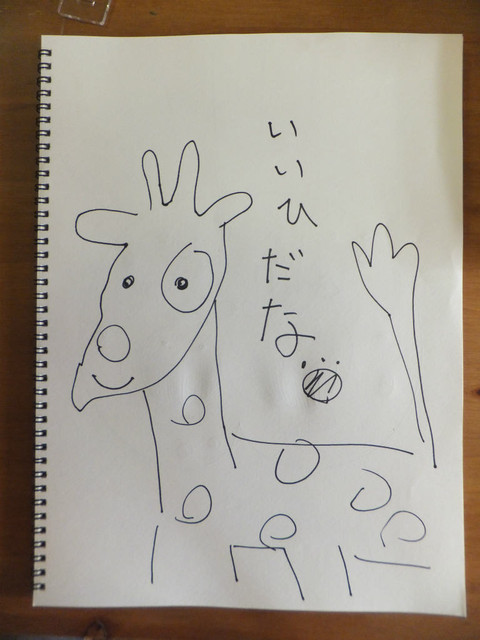 いいひだな